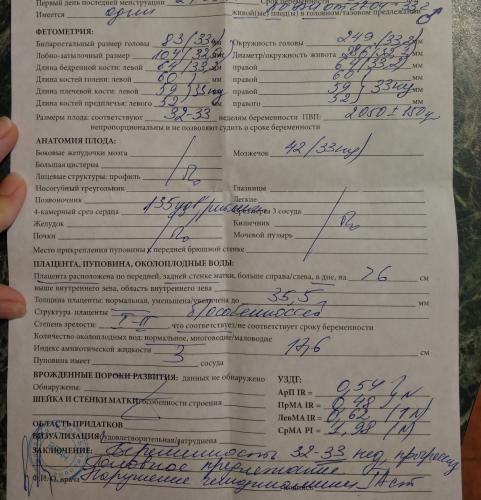 Первый день последней менструации
Имеется один живой(ые) плод(ы) в головном/тазовом предлежании
ФЕТОМЕТРИЯ:
Бипариетальный размер головы 83 /33 Окружность головы 249 /33,2 мм
Лобно-затылочный размер 104 /32 мм Диаметр/окружность живота мм
Длина бедренной кости: левой 64 /33,2 правой 64 /33,2
Длина костей голени: левой 60 правой 60 мм
Длина плечевой кости: левой 59 /33 нед правой 59 /33 нед
Длина костей предплечья: левого 52 мм правого 52 мм
Размеры плода: соответствуют 32-33 неделям беременности ПВП: 2050 ± 150 г
непропорциональны и не позволят судить о сроке беременности
АНАТОМИЯ ПЛОДА:
Боковые желудочки мозга Мозжечок 42 /33 нед
Большая цистерна
Лицевые структуры: профиль
Носогубный треугольник Глазницы
Позвоночник Легкие
4-камерный срез сердца 135 уд/ 3 сосуда
Желудок Кишечник
Почки Мочевой пузырь
Место прикрепления пуповины к передней брюшной стенке
ПЛАЦЕНТА, ПУПОВИНА, ОКОЛОПЛОДНЫЕ ВОДЫ:
Плацента расположена по передней, задней стенке матки, больше справа/слева, в дне, на 76 см
выше внутреннего зева, область внутреннего зева
Толщина плаценты: нормальная, уменьшена/увеличена до 35,5 мм
Структура плаценты б/особенностей
Степень зрелости: I-II что соответствует/не соответствует сроку беременности
Количество околоплодных вод: нормальное, многоводие/маловодие
Индекс амниотической жидкости 17,6 см
Пуповина имеет 3 сосуда
ВРОЖДЕННЫЕ ПОРОКИ РАЗВИТИЯ: данных не обнаружено УЗДГ:
Обнаружены: АрП IR = 0,54
ШЕЙКА И СТЕНКИ МАТКИ: особенности строения ПрМА IR = 0,48 N
ЛевМА IR = 0,62 (N)
ОБЛАСТЬ ПРИДАТКОВ СрМА PI = 1,98 (N)
ВИЗУАЛИЗАЦИЯ: удовлетворительная/затруднена
ЗАКЛЮЧЕНИЕ: Беременность 32-33 нед, прогресс
Головное предлежание
Ф.И.О. врача Нарушение гемодинамики I А ст